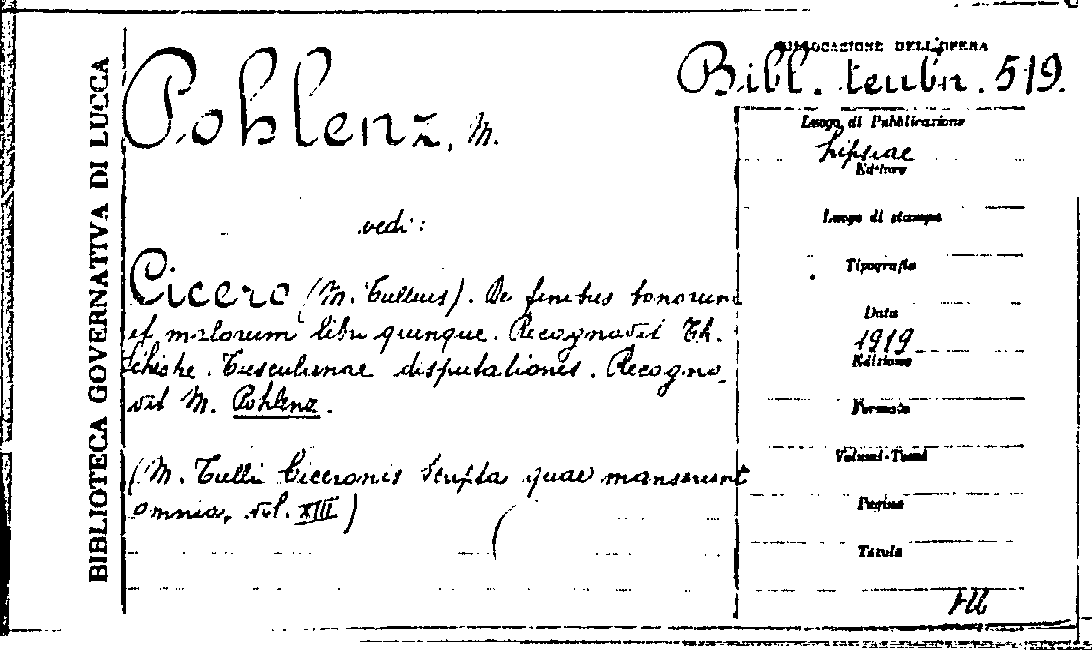 BIBLIOTECA GOVERNATIVA DI LUCCA
COLLOCAZIONE DELL'OPERA
Bibl. teubn. 519.
Pohlenz, M.
vedi:
Cicero (M. Tullius). De finibus bonorum
et malorum libri quinque. Recognovit Th.
Schiche. Tusculanae disputationes. Recogno-
vit M. Pohlenz.
(M. Tulli Ciceronis Scripta quae manserunt
omnia, vol. XIII)
Luogo di Pubblicazione
Lipsiae
Editore
Luogo di stampa
Tipografia
Data
1919
Edizione
Formato
Volumi-Tomi
Pagine
Tavole